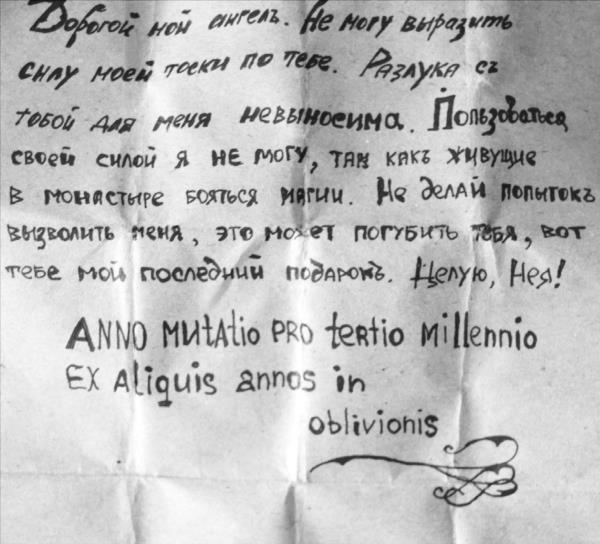 Дорогой мой ангелъ. Не могу выразить
силу моей тоски по тебе. Разлука съ
тобой для меня невыносима. Пользоваться
своей силой я не могу, так какъ живущие
в монастыре бояться магии. Не делай попытокъ
вызволить меня, это может погубить тебя, вот
тебе мой последний подарокъ. Целую, Нея!
ANNO MUtAtio PRO tertio Millennio
EX Aliquis annos in
oblivionis